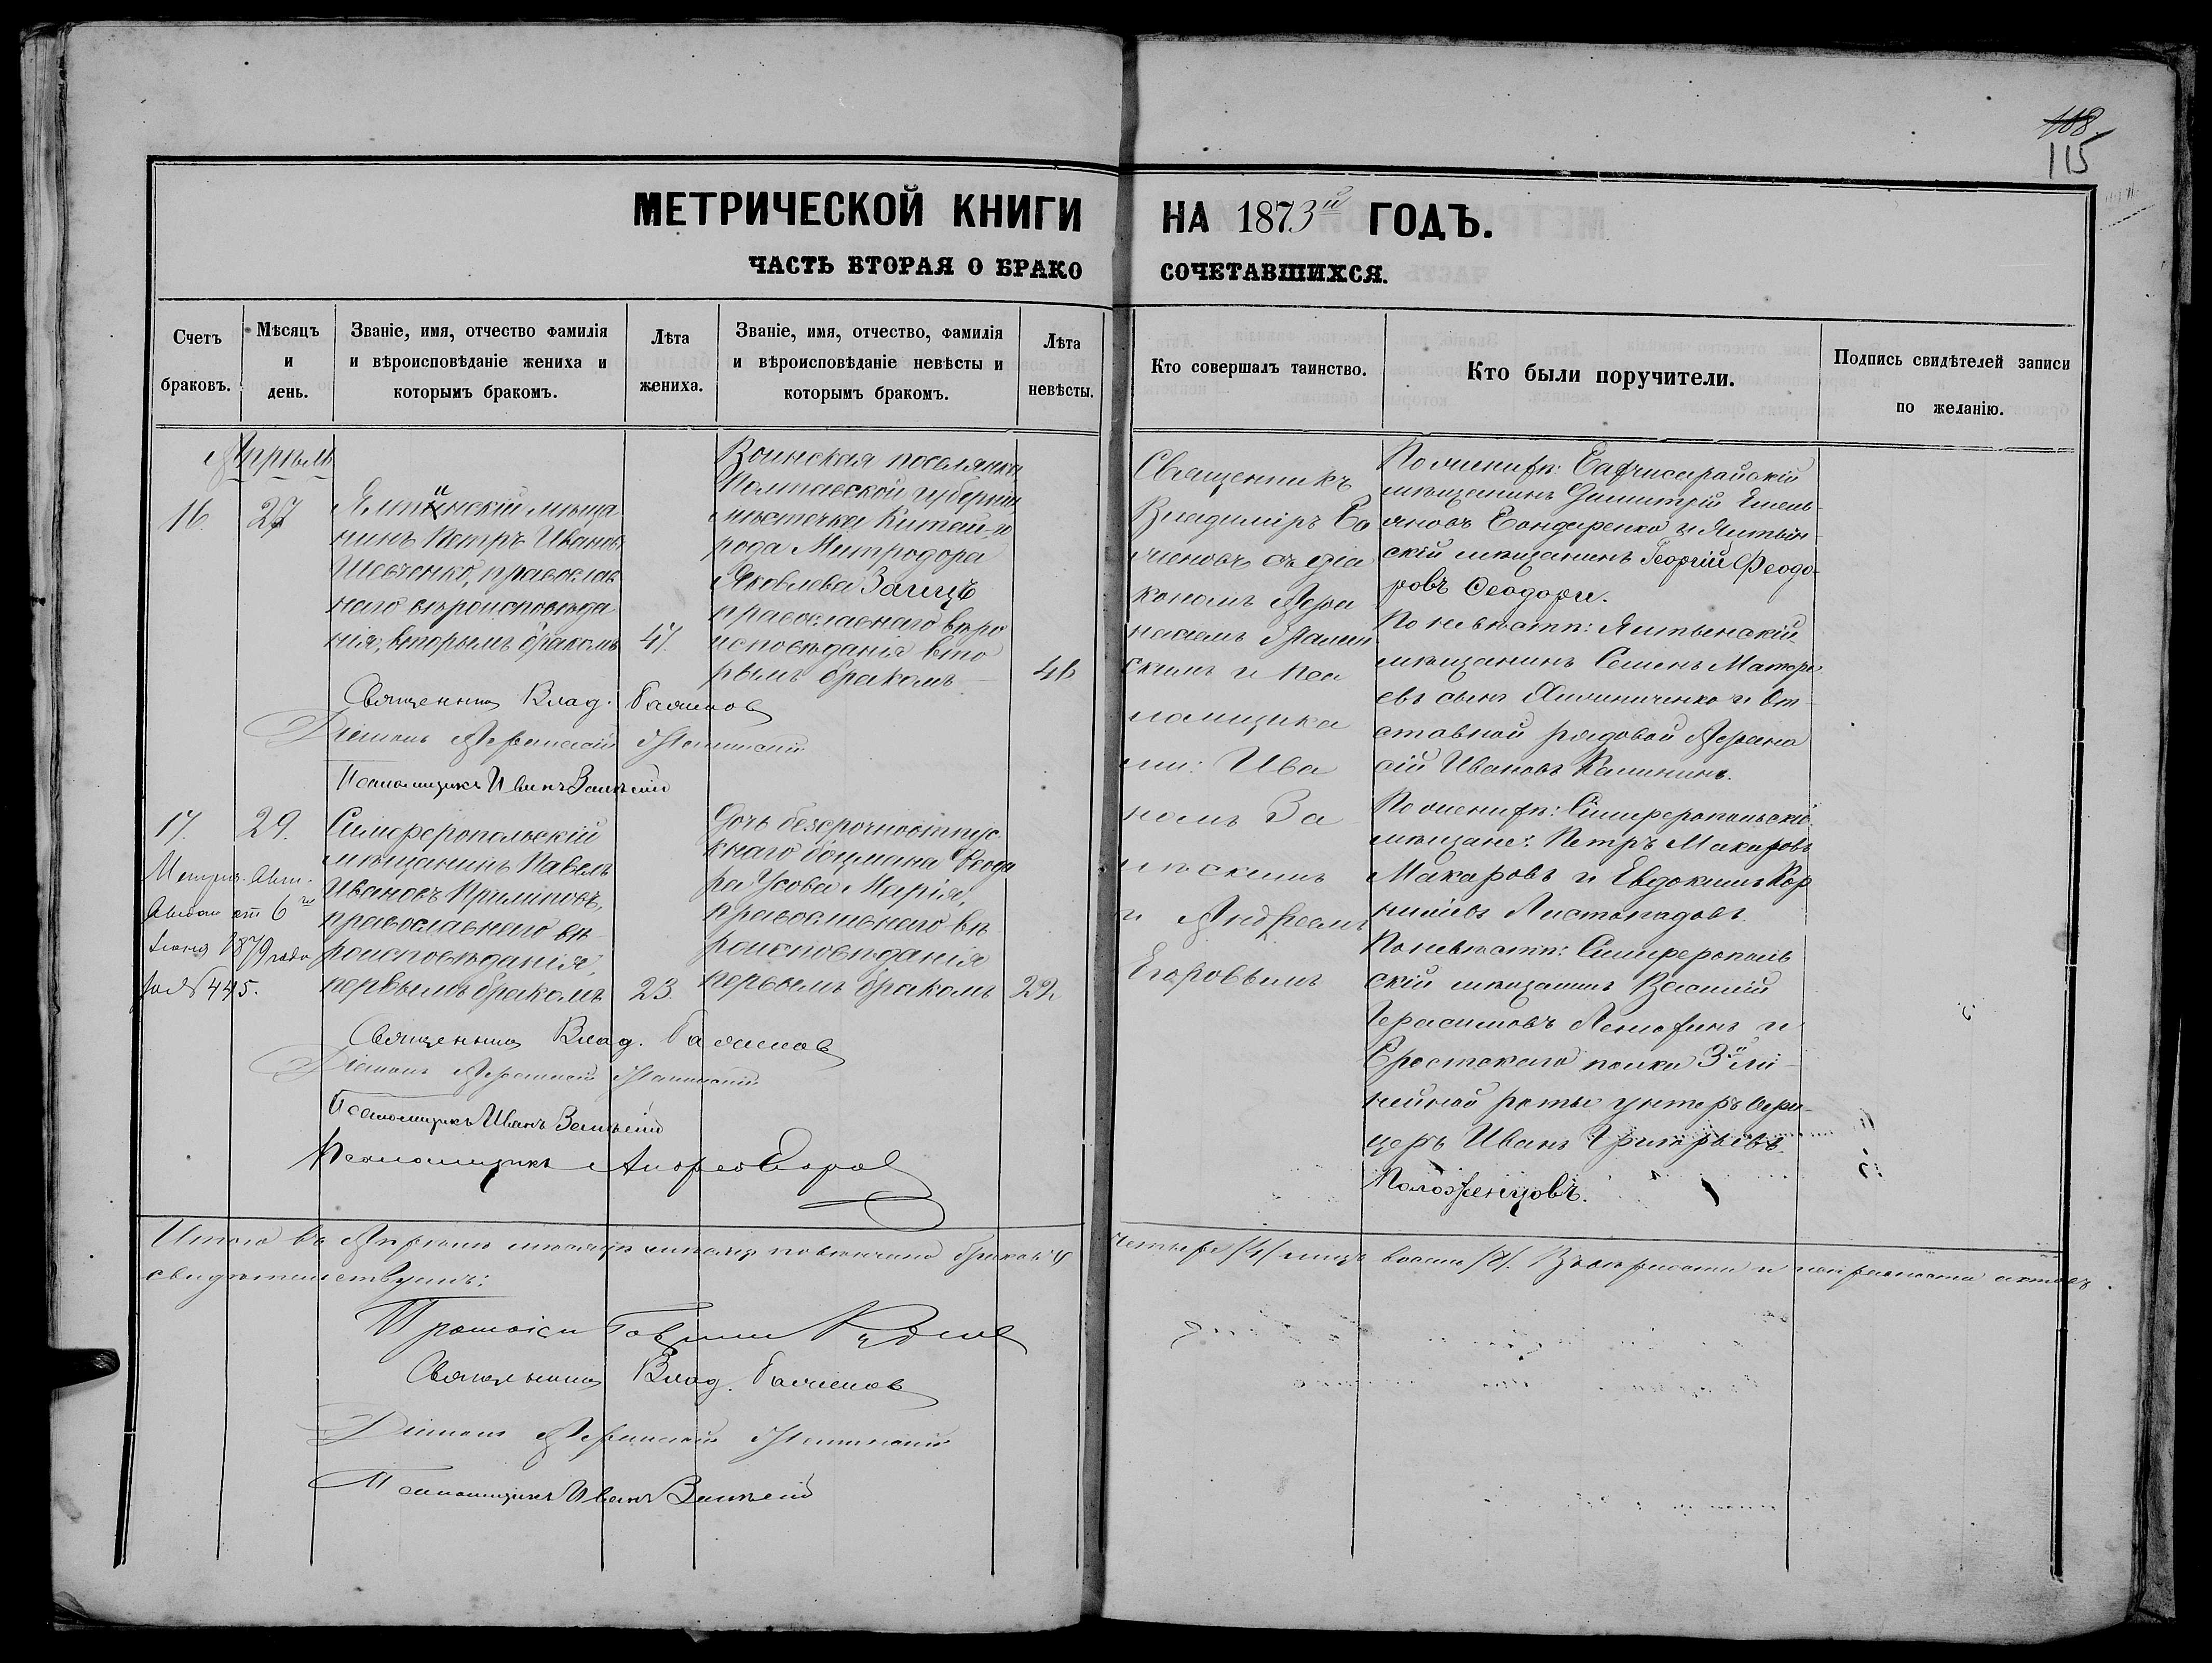 108
115
МЕТРИЧЕСКОЙ КНИГИ НА 1873й ГОДЪ.
ЧАСТЬ ВТОРАЯ О БРАКО СОЧЕТАВШИХСЯ.
Счетъ браковъ.
Мѣсяцъ и день.
Званіе, имя, отчество фамилія
и вѣроисповѣданіе жениха и
которымъ бракомъ.
Лѣта жениха.
Званіе, имя, отчество, фамилія
и вѣроисповѣданіе невѣсты и
которымъ бракомъ.
Лѣта невѣсты.
Кто совершалъ таинство.
Кто были поручители.
Подпись свидѣтелей записи
по желанію.
Апрѣль
16.
27
Ялтинскій мѣща
нинъ Петръ Ивановъ
Шевченко, православ
наго вѣроисповѣда
нія, вторымъ бракомъ
47.
Воинская поселянка
Полтавской губерніи
мѣстечка Китай-го
рода Митродора
Яковлева Заицъ
православнаго вѣро
исповѣданія вто
рымъ бракомъ
46
Священникъ
Владиміръ Ба
ченовъ съ діа
кономъ Афа
насіемъ
скимъ и пса
ломщика
ми: Ива
номъ За
скимъ
и Андреемъ
Егоровымъ
По женихѣ: Бахчисарайскій
мѣщанинъ Димитрій Емель
яновъ Бондаренко и Ялтин
скій мѣщанинъ Георгій Феодо
ровъ Феодори.
По невѣстѣ: Ялтинскій
мѣщанинъ Семенъ Матве
евъ сынъ и от
ставной рядовой Афана
сій Ивановъ Калининъ.
Священникъ Влад. Баченов
Діаконъ Афанасій
Псаломщикъ Иванъ
17.
29.
Метрич. выпи.
выдан от 6го
Іюня 1879 года
за № 445.
Симферопольскій
мѣщанинъ Павелъ
Ивановъ Примаковъ,
православнаго вѣ
роисповѣданія,
первымъ бракомъ
23.
Дочь безсрочноотпус
кнаго боцмана Феодо
ра Усова Марія,
православнаго вѣ
роисповѣданія
первымъ бракомъ
22.
По женихѣ: Симферопольскіе
мѣщане: Петръ Макаровъ
Макаровъ и Евдокимъ Кор
ниліевъ Листопадовъ.
По невѣстѣ: Симферополь
скій мѣщанинъ Василій
Герасимовъ и
Брестскаго полка 3й ли
нейной роты унтеръ офи
церъ Иванъ Григорьевъ
Положенцовъ.
Священникъ Влад. Баченов
Діаконъ Афанасій
Псаломщикъ Иванъ
Псаломщикъ Андрей Егоров
Итого въ Апрѣлѣ мѣсяцѣ повѣнчано браковъ четыре /4/ лицъ восемь /8/. Въ вѣрности и исправности актовъ
свидѣтельствуемъ:
Протоіерей
Священникъ Влад. Баченов
Діаконъ Афанасій
Псаломщикъ Иванъ